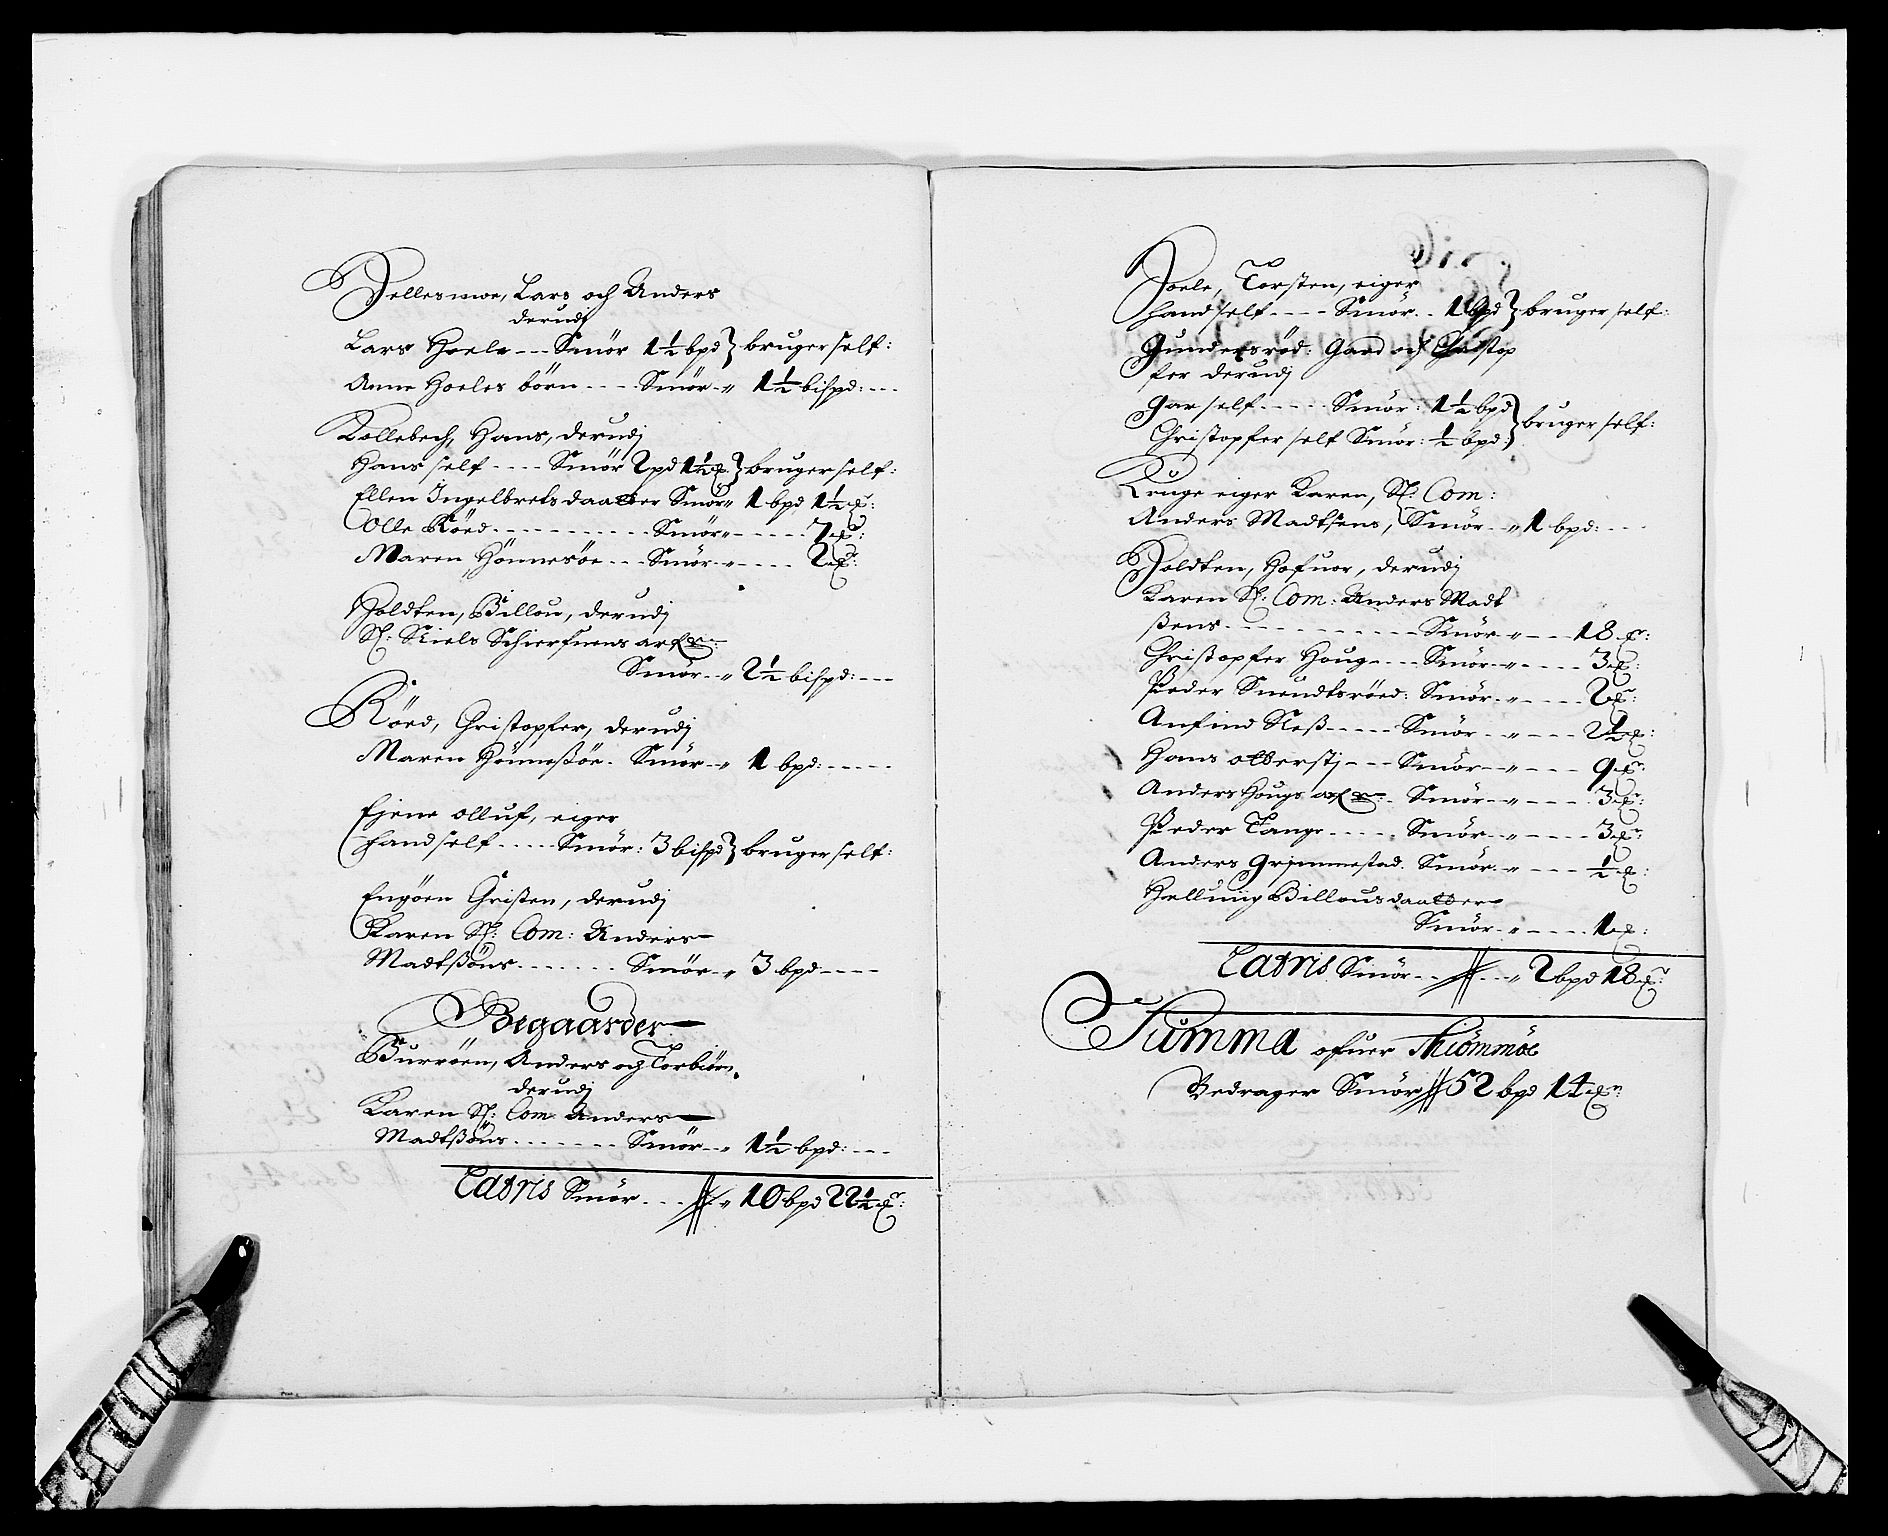 Hellesmoe, Lars och Anders
derudj
Lars Hoele --- Smör 1½ bpd } bruger self:
Anne Hoeles börn ---- Smör - „ 1½ bispd: ---
Kollebech, Hans, derudj
Hans self ---- Smör 2 pd 1½ } bruger self:
Ellen Ingelbretsdaatter Smör „ 1 bpd 1½
Olle Röed ---------- Smör „ ----- 7
Maren Hönnesöe --- Smör - „ ---- 2
Holdten, Billou, derudj
Sl: Niels Arf:
Smör - „ 2½ bispd: ---
Röed, Christopfer, derudj
Maren Hönneßöe - Smör - „ 1 bpd: -----
Ejene olluf, eiger
hand self ----- Smör: 3 bispd } bruger self:
Engöen Christen, derudj
Karen Sl: Com: Anders
Madtßöns ------- Smör - „ 3 bpd ----
Ödegaarder
Burröen, Anders och Torbiörn
derudj
Karen Sl: Com: Anders
Madtßöns -------- Smör - „ 1½ bpd: ---
Latris Smör --- // „ 10 bpd 22½
Hoele, Torsten, eiger
hand self ---- Smör -- 1 bpd } bruger self:
Gundersröd: Gard och Christop
fer derudj
Gar self ----- Smör: 1½ bpd } bruger self:
Christopfer self Smör: ½ bpd:
Kruge eiger Karen, Sl: Com:
Anders Madtsens, Smör - „ 1 bpd: ---
Holdten, Hofuor, derudj
Karen Sl: Com: Anders Madt
ßens ------------ Smör - „ --- 18
Christopfer Houg ---- Smör - „ ----- 3
Peder Suendtsröed: Smör - „ ----- 2
Anfind Neß ----- Smör - „ --- 2½
Hans olberstj --- Smör - „ --- 9
Anders Hougs arf: - Smör - „ ---- 3
Peder Tange ----- Smör - „ ---- 3
Anders Grimmestad. Smör - „ --- ½
Hellunig Billousdaatter
Smör - „ ---- 1
Latris Smör -- // -- „ 2 bpd 18
Summa ofuer Thiömmöe
Bedrager Smör // 52 bpd 14